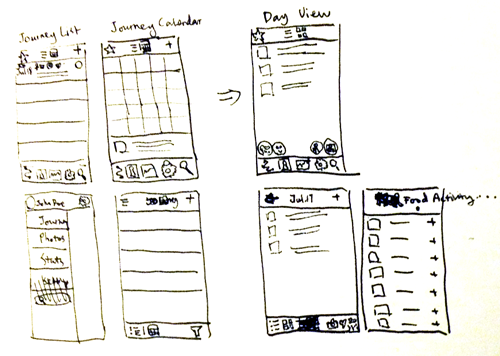 Journey List
Journey Calendar
Day View
John Doe
Journey
Photos
Stats
Jul 17
Food Activity...